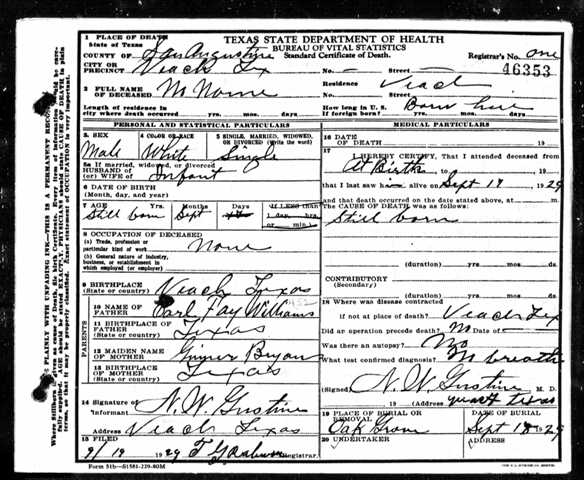 1 PLACE OF DEATH
State of Texas
TEXAS STATE DEPARTMENT OF HEALTH
BUREAU OF VITAL STATISTICS
COUNTY OF San Augustine
Standard Certificate of Death.
Registrar's No. one
CITY OR PRECINCT Veach Tx
No. – Street –
46353
2 FULL NAME OF DECEASED No Name
Residence Veach
Length of residence in city where death occurred yrs. mos. ds.
How long in U. S. If foreign born? Born here yrs. mos. ds.
PERSONAL AND STATISTICAL PARTICULARS
MEDICAL PARTICULARS
3 SEX Male
4 COLOR OR RACE Whit
5 SINGLE, MARRIED, WIDOWED, OR DIVORCED (write the word) Single
16 DATE OF DEATH 19
5a If married, widowed, or divorced
HUSBAND OF
(or) WIFE OF Infant
17 I HEREBY CERTIFY, That I attended deceased from
At Birth 19 , to 19
6 DATE OF BIRTH
(Month, day, and year)
that I last saw him alive on Sept 18 , 1929
and that death occurred on the date stated above, at m.
7 AGE Years Months Days If LESS than 1 day, hrs. or min.)
Still born Sept
The CAUSE OF DEATH was as follows:
Still born
8 OCCUPATION OF DECEASED
(a) Trade, profession or particular kind of work None
(b) General nature of Industry, business, or establishment in which employed (or employer)
(duration) yrs. mos. ds.
CONTRIBUTORY
(Secondary)
(duration) yrs. mos. ds.
9 BIRTHPLACE
(State or country) Veach Texas
18 Where was disease contracted
if not at place of death? Veach Tex
PARENTS
10 NAME OF FATHER Earl Fay Williams
11 BIRTHPLACE OF FATHER
(State or country) Texas
Did an operation precede death? No Date of –
Was there an autopsy? No
12 MAIDEN NAME OF MOTHER
13 BIRTHPLACE OF MOTHER
(State or country) Texas
What test confirmed diagnosis? No breath
(Signed) N. W. Gustine M. D.
19 (Address) texas
14 Signature of Informant N. W. Gustine
Address Veach Texas
19 PLACE OF BURIAL OR REMOVAL Oak Grove
DATE OF BURIAL Sept 18 1929
15 FILED 9/19 1929 Registrar.
20 UNDERTAKER
ADDRESS
Form 51b-S1581-229-80M